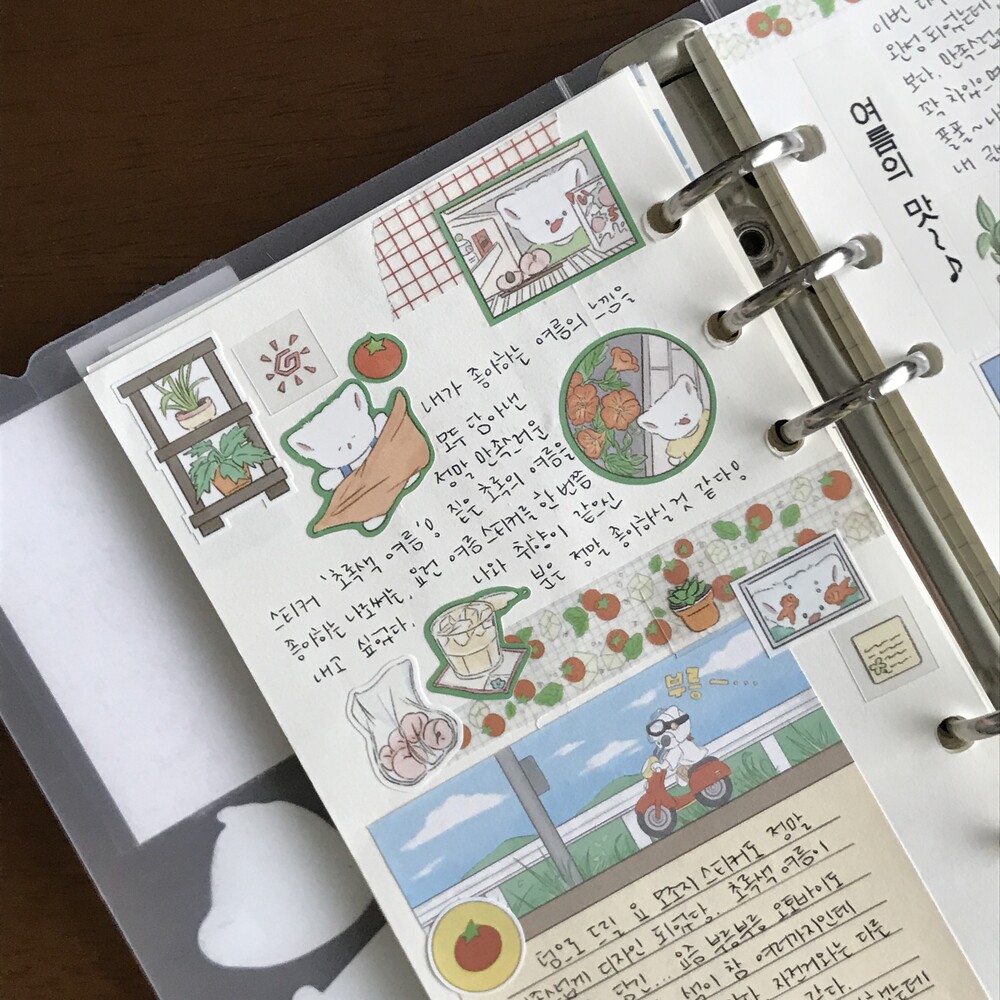 내가 좋아하는 여름의 느낌을
모두 담아낸
정말 만족스러운
스티커 '초록색 여름'! 짙은 초록의 여름을
좋아하는 나로써는, 요런 여름 스티커를 한 번쯤
내고 싶었다. 나와 취향이 같으신
분은 정말 좋아하실 것 같다!
부릉ㅡ...
덤으로 드릴 요 모조지 스티커도 정말
디자인 되었당. 초록색 여름이
당긴... 요즘 부릉부릉 오토바이도
색이 참 여러가지인데
자전거와는 다른
같다.
이번
완성되었는데
보다. 만족스럽
꽉 차있으며
폴폴~ 나
내
여름의 맛~♪